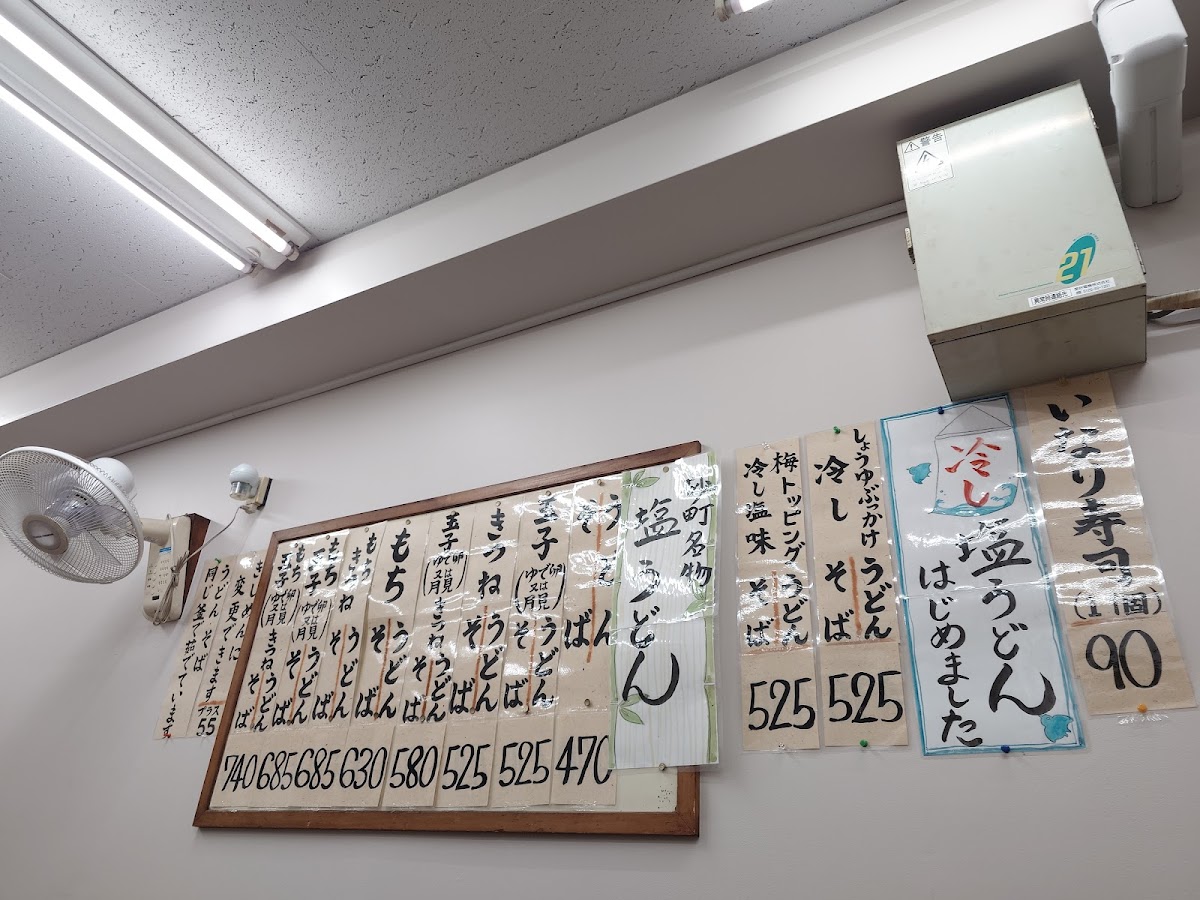 警告
21
異常時連絡先
いなり寿司
(1個)
90
冷し
塩うどん
はじめました
しょうゆぶっかけ
冷し
うどん
そば
525
梅トッピング
冷し塩味
うどん
そば
525
町名物
塩うどん
うどん
そば
470
玉子
うどん
そば
525
きつね
うどん
そば
525
玉子
きつねうどん
そば
580
もち
うどん
そば
630
もち
きつね
うどん
そば
685
もち
玉子
うどん
そば
685
もち
玉子
きつねうどん
そば
740
きしめんに
変更できます
プラス
55
うどん そば
同じ釜で茹でています